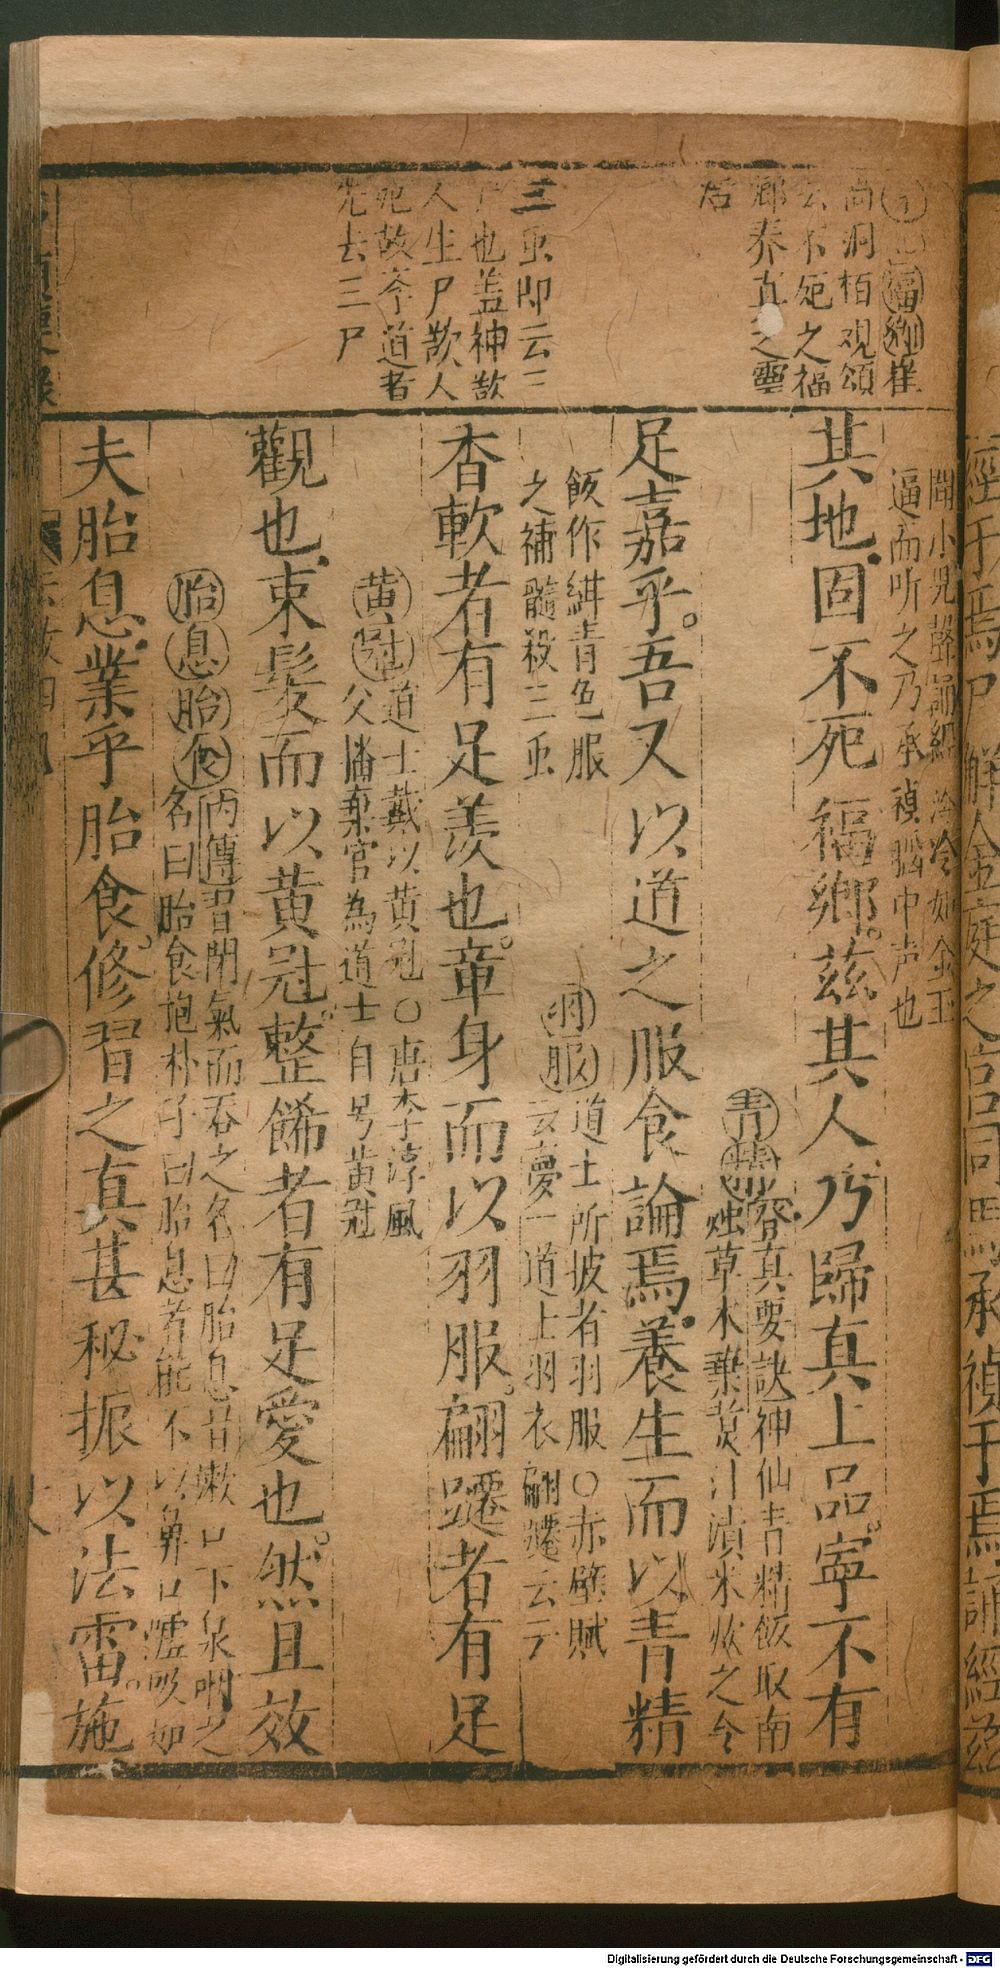 經于焉尸解金庭之宮同𭥍承禎于焉誦經茲
高洞栢观頌
云不死之福
鄉泰真之靈
居
三虫即云三
尸也盖神欲
人生尸欲人
死故学道者
先去三尸
聞小児聲誦經泠泠如金玉
逼而听之乃承禎腦中声也
其地固不死福鄉茲其人乃歸真上品寧不有
青精登真要訣神仙青精飯取南
燭草木葉煑汁漬米炊之令
足嘉乎吾又以道之服食論焉養生而以青精
飯作紺青色服
之補髓殺三虫
羽服道士所披者羽服〇赤壁賦
云夢一道士羽衣翩躚云云
杳軟者有足羨也章身而以羽服翩躚者有足
黄冠道士戴以黄冠〇唐李淳風
父播棄官為道士自号黄冠
觀也束髮而以黄冠整餙者有足愛也然且效
胎息胎食内傳習閉氣而吞之名曰胎息習嗽口下泉咽之
名曰胎食抱朴子曰胎息者能不以鼻口嘘吸如
夫胎息業乎胎食修習之真甚秘振以法雷施
Digitalisierung gefördert durch die Deutsche Forschungsgemeinschaft - DFG